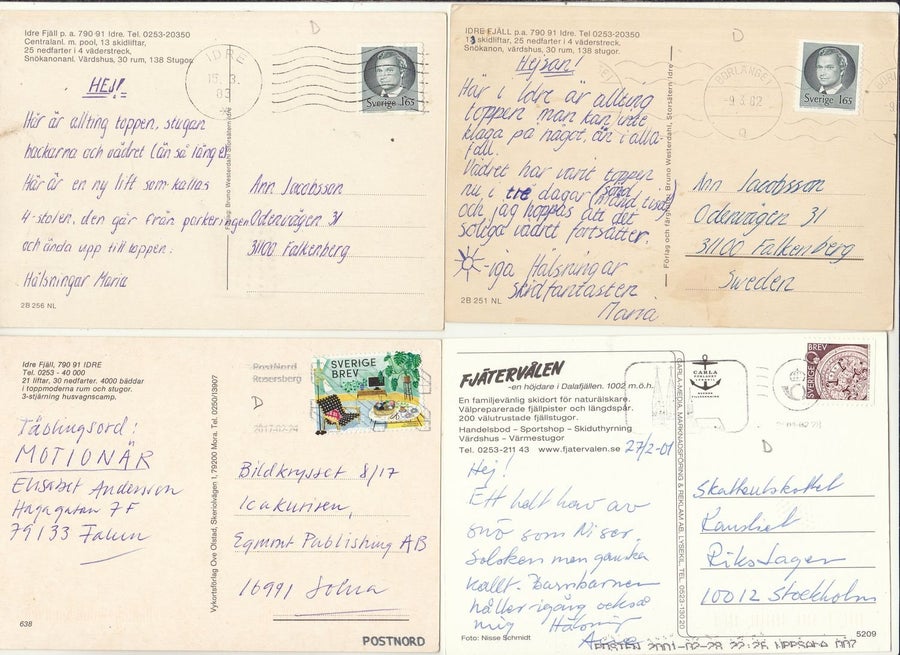 Idre Fjäll p.a. 790 91 Idre. Tel. 0253-20350
Centralanl. m. pool, 13 skidliftar,
25 nedfarter i 4 väderstreck.
Snökanonanl. Värdshus, 30 rum, 138 Stugor.
D
IDRE
15. 3.
83
Sverige 165
HEJ!
Här är allting toppen, stugan
backarna och vädret (än så länge)
Här är en ny lift som kallas
4-stolen, den går från parkeringen
och ända upp till toppen.
Hälsningar Maria
Ann Jacobsson
Odervägen 31
31100 Falkenberg
2B 256 NL
IDRE FJÄLL p.a. 790 91 Idre. Tel 0253-20350
13 skidliftar, 25 nedfarter i 4 väderstreck,
Snökanon, värdshus, 30 rum, 138 stugor
D
BORLÄNGE 1
-9. 3. 82
Sverige 165
Hejsan!
Här i Idre är allting
toppen man kan inte
klaga på något, än i alla
fall.
Vädret har varit toppen
nu i tre dagar (sönd, månd, tisd)
och jag hoppas att det
soliga vädret fortsätter.
-iga Hälsningar
Skidfantasten
Maria
Förlag och färgfoto: Bruno Westerdahl, Storsätern Idre
Ann Jacobsson
Odervägen 31
31100 Falkenberg
Sweden
2B 251 NL
Idre Fjäll, 790 91 IDRE
Tel. 0253 - 40 000
21 liftar, 30 nedfarter. 4000 bäddar
i toppmoderna rum och stugor.
3-stjärning husvagnscamp.
PostNord
Rosersberg
D
2017-02-24
SVERIGE
BREV
Tävlingsord:
MOTIONÄR
Elisabet Andersson
Hagagatan 7F
79133 Falun
Vykortsförlag Ove Olstad, Skeriolvägen 1, 79200 Mora. Tel. 0250/13907
Bildkrysset 8/17
Icakuriren,
Egmont Publishing AB
16991 Solna
638
POSTNORD
FJÄTERVÅLEN
-en höjdare i Dalafjällen. 1002 m.ö.h.
En familjevänlig skidort för naturälskare.
Välpreparerade fjällpister och längdspår.
200 välutrustade fjällstugor.
Handelsbod - Sportshop - Skiduthyrning
Värdshus - Värmestugor
Tel. 0253-211 43 www.fjatervalen.se
CARLA
SVERIGE BREV
27/2-01
Hej!
Ett helt hav av
snö som Niser
Solsken men ganska
kallt. Barnbarnen
håller igång också
mig Hälsning
CARLA-MEDIA, MARKNADSFÖRING & REKLAM AB, LYSEKIL, TEL. 0523-130 20
D
Skatteutskottet
Kansliet
Riksdagen
10012 Stockholm
Foto: Nisse Schmidt
5209
POSTEN 2001-02-28 22:26 UPPSALA 007